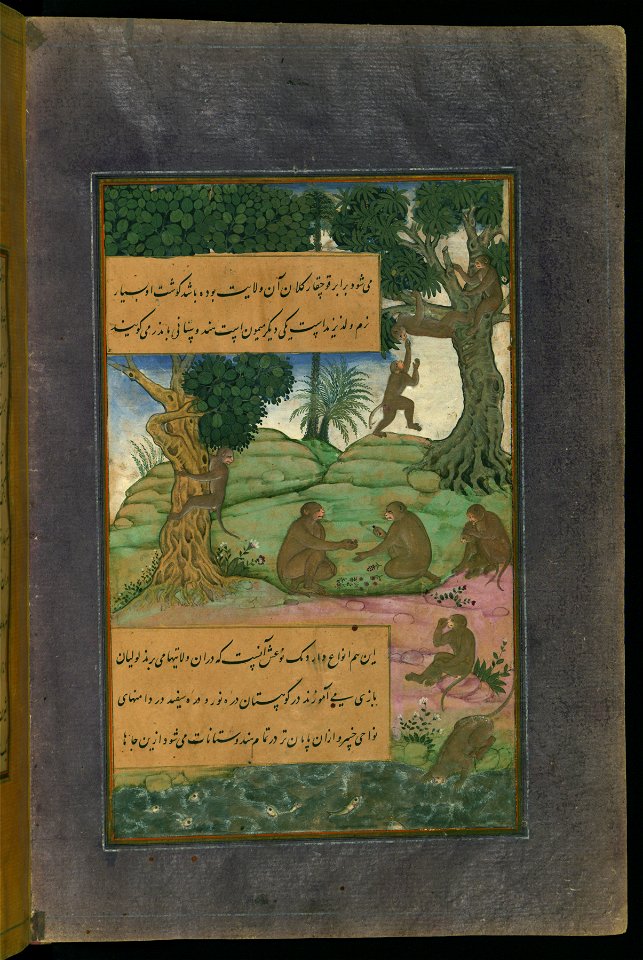 می شود برابر قوچقار کلان آن ولایت بوده باشد گوشت او بسیار
نرم و لذیذ است یکی دیگر میمون است هندوستانی بندر می گویند
این هم انواع دارد یک نوعش آنست که در آن ولایتها می برند لولیان
بازی می آموزند در کوهستان دره نور و دره سفید در دامنهای
نواحی خیبر و از آن پایان تر در تمام هندوستانات می شود ازین جاها